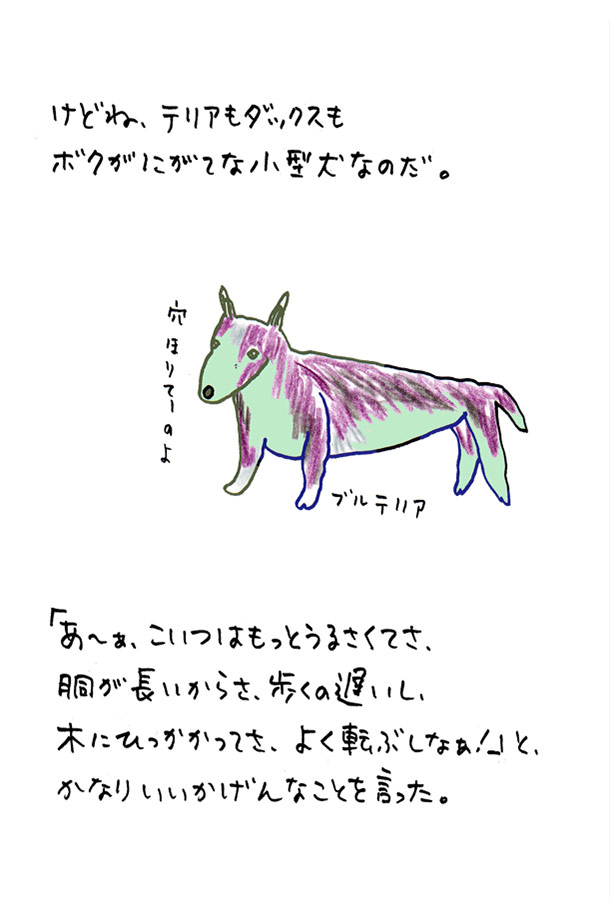 けどね、テリアもダックスも
ボクがにがてな小型犬なのだ。
穴ほりてーのよ
ブルテリア
「あ〜ぁ、こいつはもっとうるさくてさ、
胴が長いからさ、歩くの遅いし、
木にひっかかってさ、よく転ぶしなぁ!」と、
かなりいいかげんなことを言った。